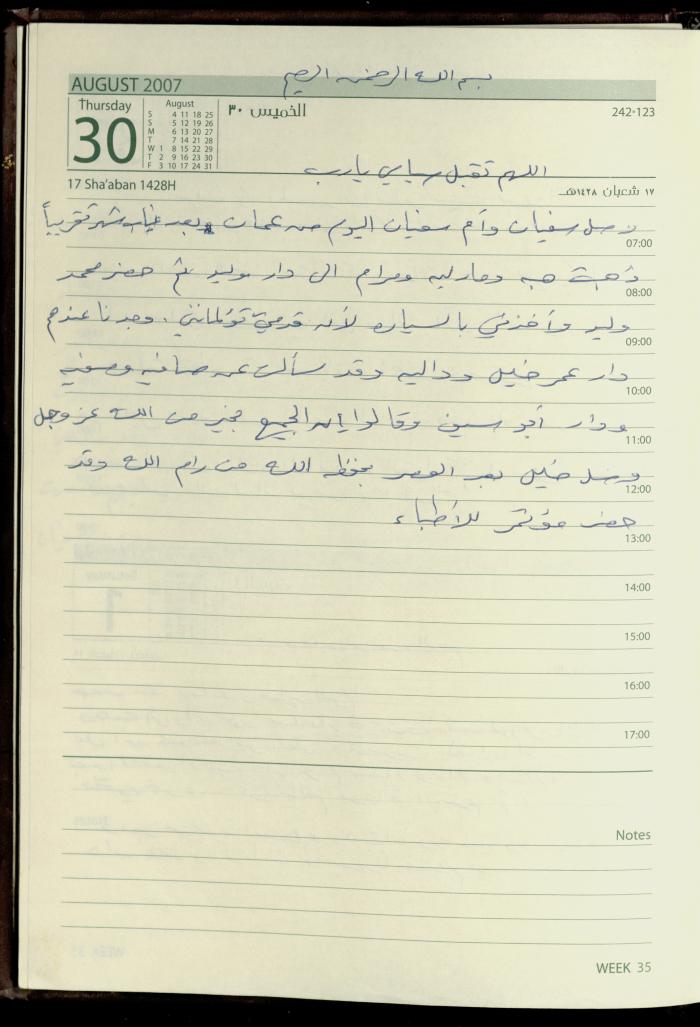 بسم الله الرحمن الرحيم
AUGUST 2007
Thursday
30
August
S 4 11 18 25
S 5 12 19 26
M 6 13 20 27
T 7 14 21 28
W 1 8 15 22 29
T 2 9 16 23 30
F 3 10 17 24 31
الخميس ٣٠
242-123
اللهم تقبل صيامي يا رب
17 Sha'aban 1428H
١٧ شعبان ١٤٢٨هـ
وصل سفيان وأم سفيان اليوم من عمان وبعد غياب شهر تقريباً
07:00
ذهبت هبه ومارليه ومرام الى دار وليد ثم حضر محمد
08:00
وليد وأخذني بالسياره لأن قدمي تؤلمانني. وجدنا عندهم
09:00
دار عمر خليل وداليه وقد سألت عن صافيه وصفيه
10:00
ودار أبو سيف وقالوا إن الجميع بخير من الله عز وجل
11:00
وصل خليل بعد العصر بحفظ الله من رام الله وقد
12:00
حضر مؤتمر للأطباء
13:00
14:00
15:00
16:00
17:00
Notes
WEEK 35